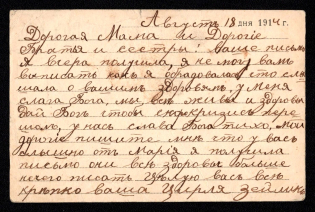 Августъ 18 дня 1914 г.
Дорогая Мама и Дорогіе
Братья и сестры! Ваше письмо
Я вчера получила, я не могу вамъ
выписать какъ я обрадовалась что слы
шала о вашимъ здоровьям, у меня
слага Бога, мы, всѣ живы и здоровы
дай Богъ чтобы
у насъ слава Бога тихо, Мои
дорогіе пишите мнѣ что у васъ
слышно отъ Марія я получила
письмо они всѣ здоровы больше
нечего писать Цѣлую васъ всѣ
крѣпко ваша Цирля